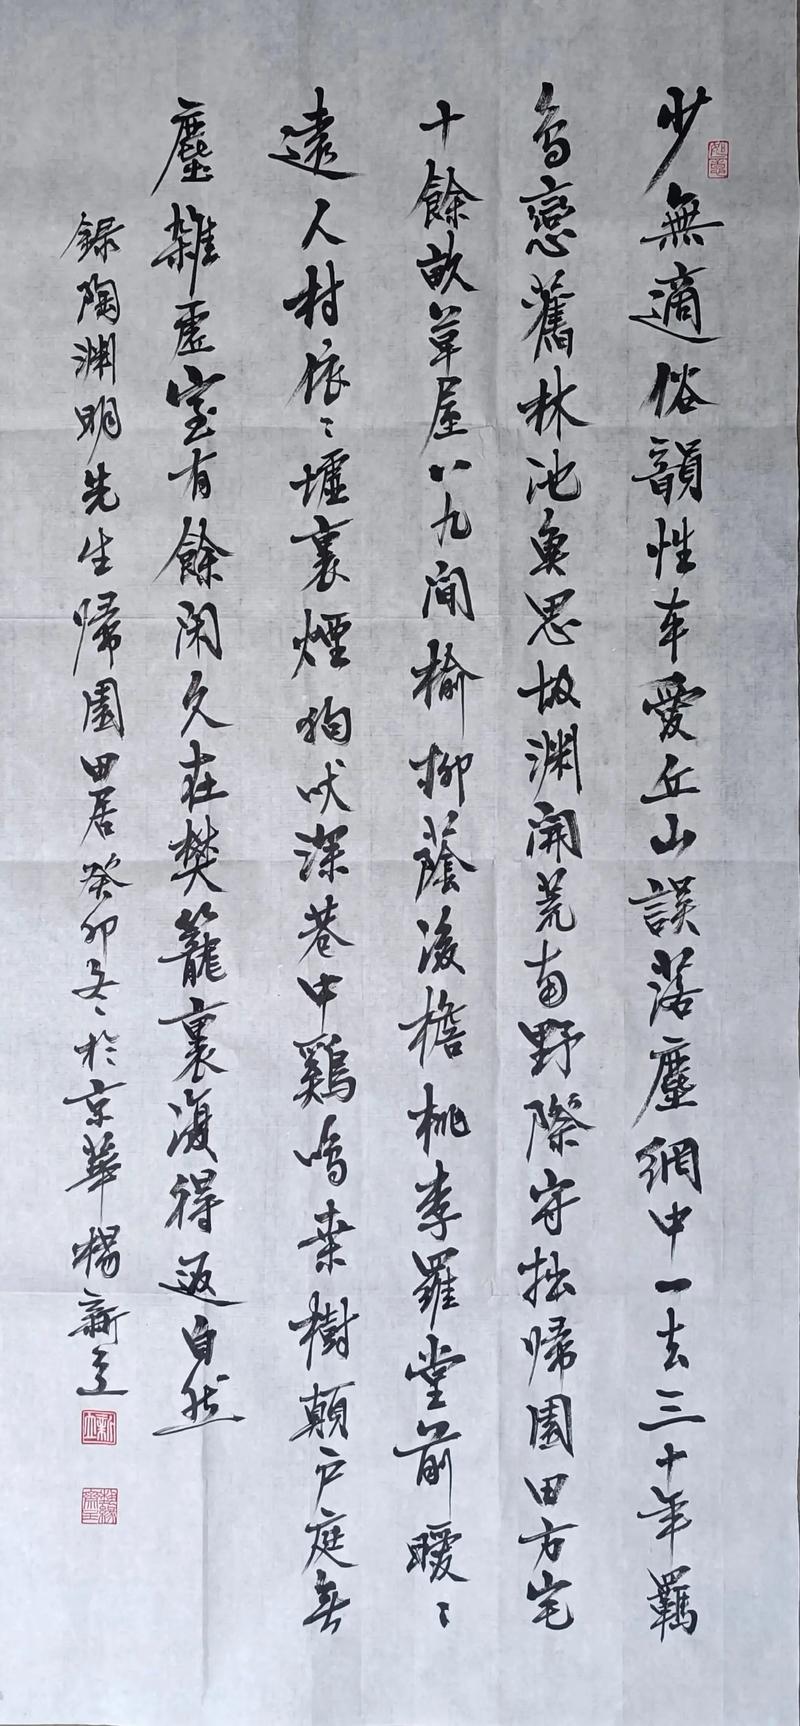 少無適俗韻性本愛丘山誤落塵網中一去三十年羈
鳥戀舊林池魚思故淵開荒南野際守拙歸園田方宅
十餘畝草屋八九間榆柳蔭後檐桃李羅堂前曖〻
遠人村依〻墟裏煙狗吠深巷中雞鳴桑樹顛戶庭無
塵雜虛室有餘閑久在樊籠裏復得返自然
録陶淵明先生歸園田居癸卯冬於京華楊新立